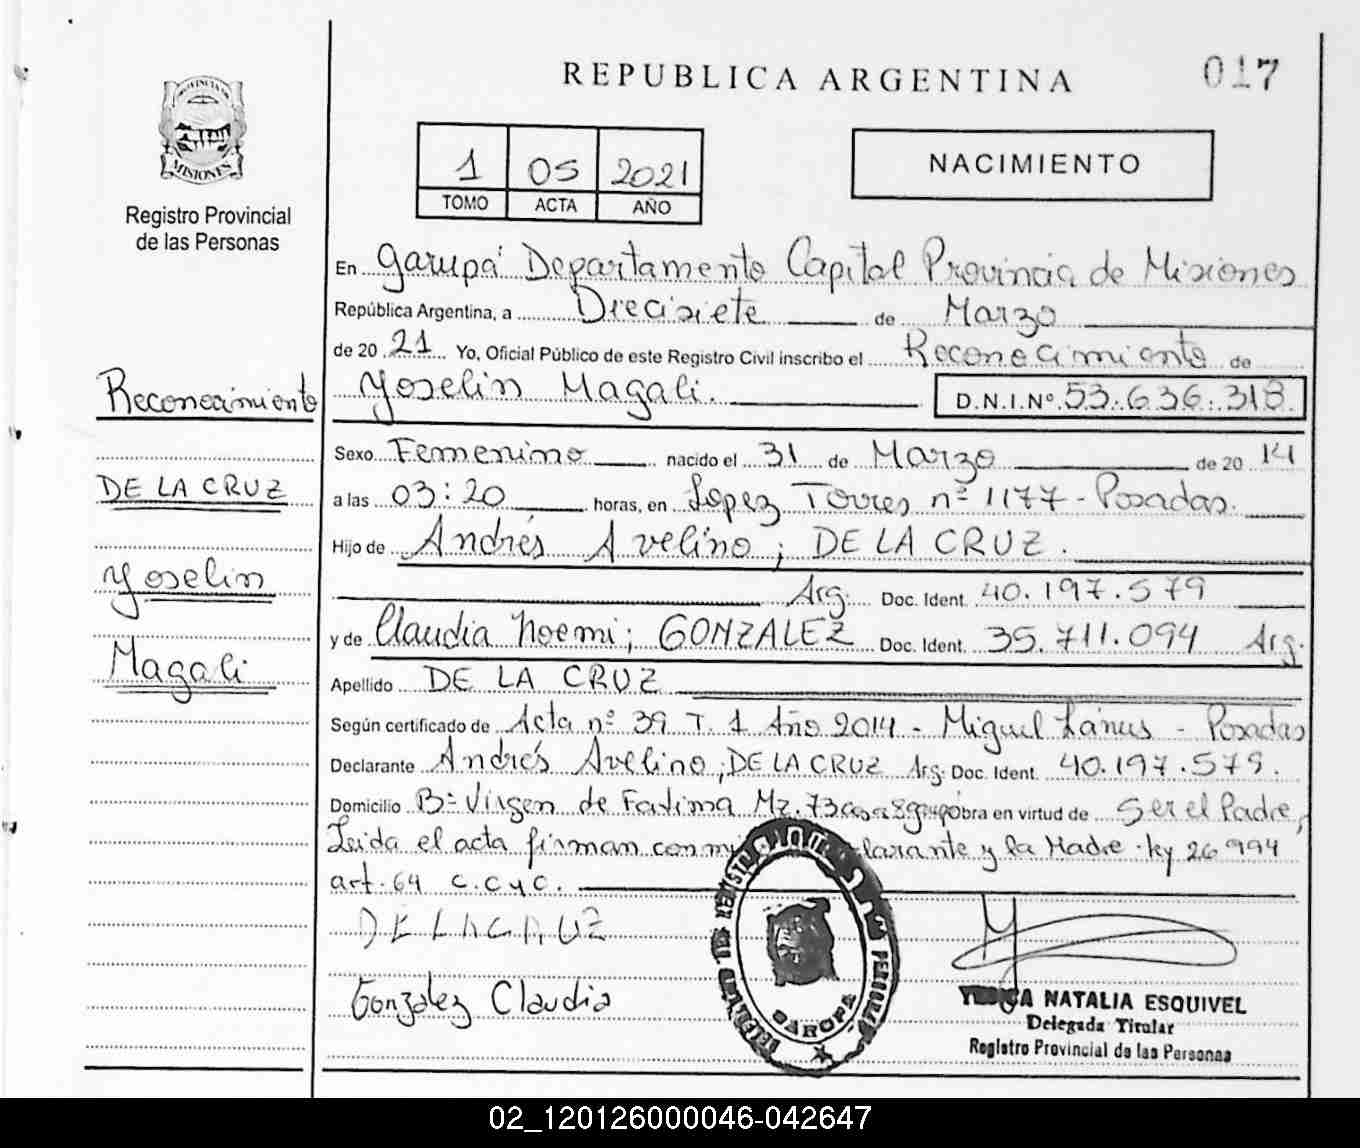 REPUBLICA ARGENTINA
017
PROVINCIA DE
MISIONES
Registro Provincial
de las Personas
1 05 2021
TOMO ACTA AÑO
NACIMIENTO
En Garupá Departamento Capital Provincia de Misiones
República Argentina, a Diecisiete de Marzo
de 20 21 Yo, Oficial Público de este Registro Civil inscribo el Reconocimiento de
Yoselin Magali. D.N.I.Nº 53.636.318.
Reconocimiento
DE LA CRUZ
Yoselin
Magali
Sexo Femenino nacido el 31 de Marzo de 20 14
a las 03:20 horas, en Lopez Torres nº 1177 - Posadas.
Hijo de Andrés Avelino; DE LA CRUZ.
Arg. Doc. Ident. 40.197.579
y de Claudia Noemi; GONZALEZ Doc. Ident. 35.711.094 Arg.
Apellido DE LA CRUZ
Según certificado de Acta nº 39 T. 1 Año 2014 - Miguel Lanus - Posadas
Declarante Andrés Avelino; DE LA CRUZ Arg. Doc. Ident. 40.197.579.
Domicilio Bº Virgen de Fatima Mz. 73 casa 8 garupá obra en virtud de Ser el Padre,
Leida el acta firman con mi larante y la Madre - ley 26994
art. 64 C.C y C.
DE LA CRUZ
Gonzalez Claudia
GARUPA
NATALIA ESQUIVEL
Delegada Titular
Registro Provincial de las Personas
02_120126000046-042647